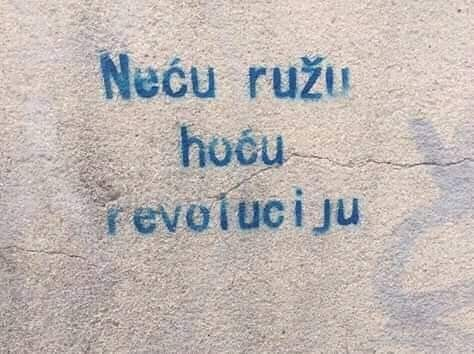 Neću ružu
hoću
revoluciju